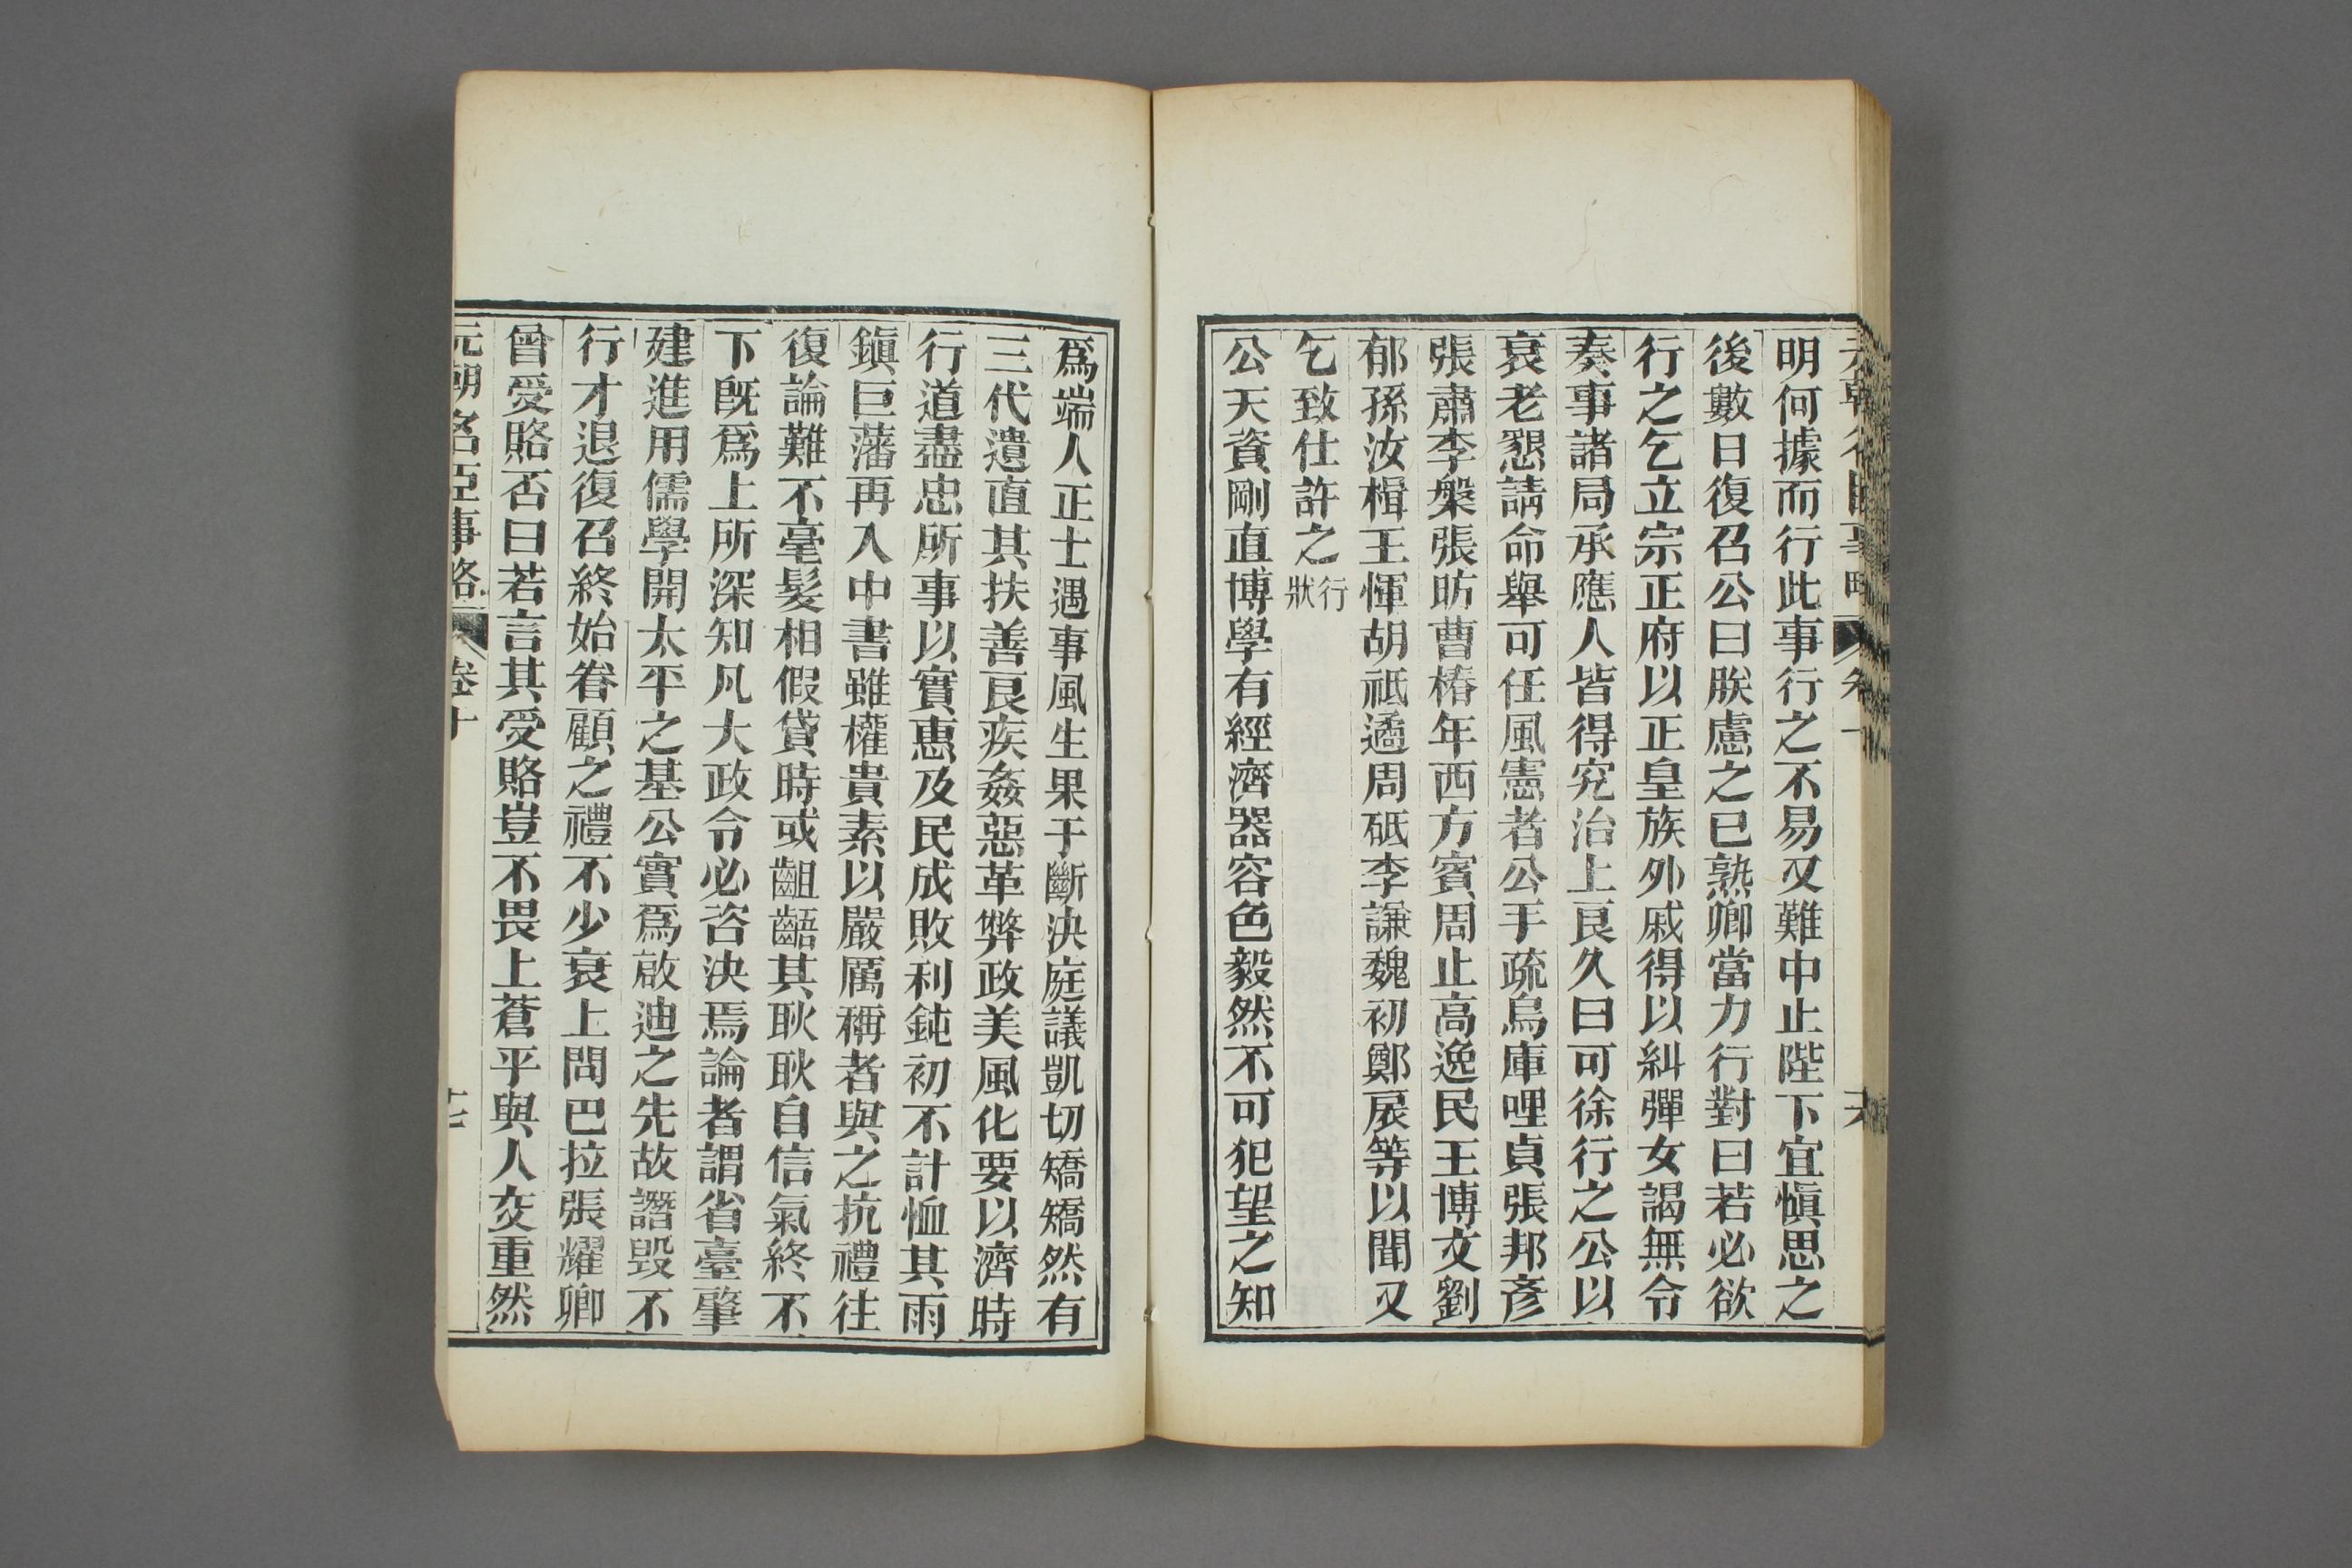 明何據而行此事行之不易又難中止陛下宜愼思之
後數日復召公曰朕慮之已熟卿當力行對曰若必欲
行之乞立宗正府以正皇族外戚得以糾彈女謁無令
奏事諸局承應人皆得究治上良久曰可徐行之公以
衰老懇請命舉可任風憲者公手疏烏庫哩貞張邦彥
張肅李槃張昉曹椿年西方賓周止高逸民王博文劉
郁孫汝楫王惲胡祗遹周砥李謙魏初鄭扆等以聞又
乞致仕許之行狀
公天資剛直博學有經濟器容色毅然不可犯望之知
爲端人正士遇事風生果于斷決庭議凱切矯矯然有
三代遺直其扶善良疾姦惡革弊政美風化要以濟時
行道盡忠所事以實惠及民成敗利鈍初不計恤其雨
鎭巨藩再入中書雖權貴素以嚴厲稱者與之抗禮往
復論難不毫髮相假貸時或齟齬其耿耿自信氣終不
下旣爲上所深知凡大政令必咨決焉論者謂省臺肇
建進用儒學開太平之基公實爲啟迪之先故譖毀不
行才退復召終始眷顧之禮不少衰上問巴拉張耀卿
曾受賂否曰若言其受賂豈不畏上蒼乎與人交重然
元朝名臣事略 卷十 十七